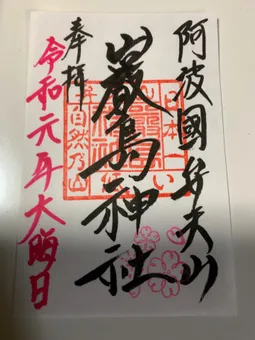 阿波國弁天山
日本一
巌島神社
自然乃山
奉拝
令和元年大晦日